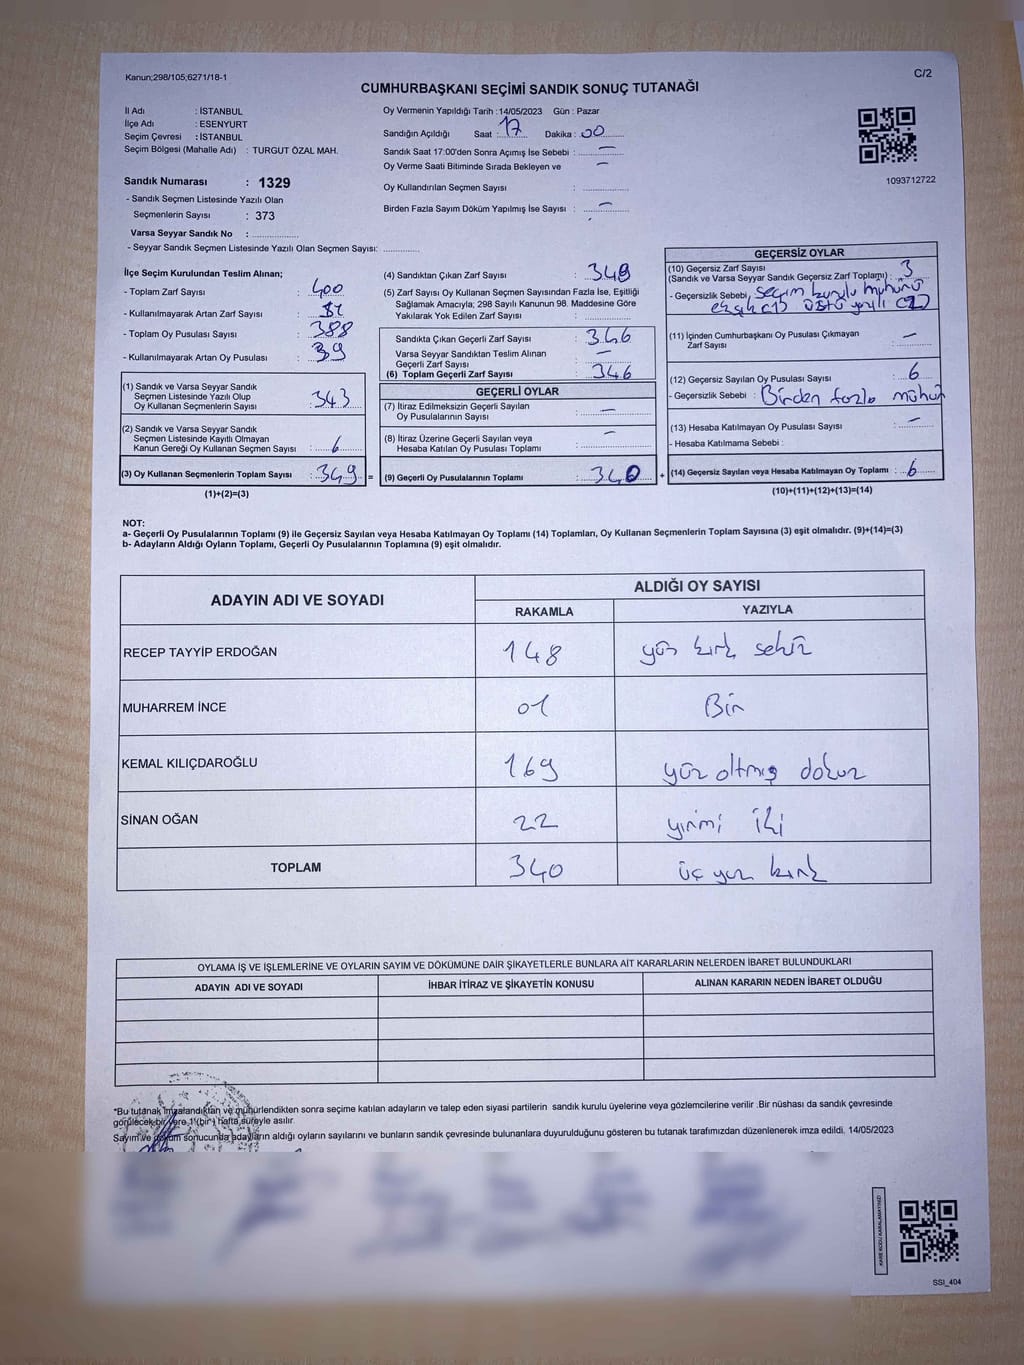 Kanun;298/105;6271/18-1
C/2
CUMHURBAŞKANI SEÇİMİ SANDIK SONUÇ TUTANAĞI
İl Adı : İSTANBUL
İlçe Adı : ESENYURT
Seçim Çevresi : İSTANBUL
Seçim Bölgesi (Mahalle Adı) : TURGUT ÖZAL MAH.
Sandık Numarası : 1329
- Sandık Seçmen Listesinde Yazılı Olan
Seçmenlerin Sayısı : 373
Varsa Seyyar Sandık No :
- Seyyar Sandık Seçmen Listesinde Yazılı Olan Seçmen Sayısı:
Oy Vermenin Yapıldığı Tarih :14/05/2023 Gün : Pazar
Sandığın Açıldığı Saat : 17 Dakika : 00
Sandık Saat 17:00'den Sonra Açımış İse Sebebi : —
Oy Verme Saati Bitiminde Sırada Bekleyen ve —
Oy Kullandırılan Seçmen Sayısı :
Birden Fazla Sayım Döküm Yapılmış İse Sayısı : —
1093712722
İlçe Seçim Kurulundan Teslim Alınan;
- Toplam Zarf Sayısı : 400
- Kullanılmayarak Artan Zarf Sayısı :
- Toplam Oy Pusulası Sayısı : 388
- Kullanılmayarak Artan Oy Pusulası : 39
(1) Sandık ve Varsa Seyyar Sandık
Seçmen Listesinde Yazılı Olup
Oy Kullanan Seçmenlerin Sayısı : 343
(2) Sandık ve Varsa Seyyar Sandık
Seçmen Listesinde Kayıtlı Olmayan
Kanun Gereği Oy Kullanan Seçmen Sayısı : 6
(3) Oy Kullanan Seçmenlerin Toplam Sayısı : 349 =
(1)+(2)=(3)
(4) Sandıktan Çıkan Zarf Sayısı : 349
(5) Zarf Sayısı Oy Kullanan Seçmen Sayısından Fazla İse, Eşitliği
Sağlamak Amacıyla; 298 Sayılı Kanunun 98. Maddesine Göre
Yakılarak Yok Edilen Zarf Sayısı :
Sandıkta Çıkan Geçerli Zarf Sayısı : 346
Varsa Seyyar Sandıktan Teslim Alınan —
Geçerli Zarf Sayısı :
(6) Toplam Geçerli Zarf Sayısı : 346
GEÇERLİ OYLAR
(7) İtiraz Edilmeksizin Geçerli Sayılan —
Oy Pusulasının Sayısı :
(8) İtiraz Üzerine Geçerli Sayılan veya —
Hesaba Katılan Oy Pusulası Toplamı :
(9) Geçerli Oy Pusulalarının Toplamı : 340 +
GEÇERSİZ OYLAR
(10) Geçersiz Zarf Sayısı
(Sandık ve Varsa Seyyar Sandık Geçersiz Zarf Toplamı) : 3
- Geçersizlik Sebebi : Seçim kurulu mührü
eksik (1) üstü yazılı (2)
(11) İçinden Cumhurbaşkanı Oy Pusulası Çıkmayan —
Zarf Sayısı :
(12) Geçersiz Sayılan Oy Pusulası Sayısı : 6
- Geçersizlik Sebebi : Birden fazla mühür
(13) Hesaba Katılmayan Oy Pusulası Sayısı : —
- Hesaba Katılmama Sebebi :
(14) Geçersiz Sayılan veya Hesaba Katılmayan Oy Toplamı : 6
(10)+(11)+(12)+(13)=(14)
NOT:
a- Geçerli Oy Pusulalarının Toplamı (9) ile Geçersiz Sayılan veya Hesaba Katılmayan Oy Toplamı (14) Toplamları, Oy Kullanan Seçmenlerin Toplam Sayısına (3) eşit olmalıdır. (9)+(14)=(3)
b- Adayların Aldığı Oyların Toplamı, Geçerli Oy Pusulalarının Toplamına (9) eşit olmalıdır.
ADAYIN ADI VE SOYADI ALDIĞI OY SAYISI
RAKAMLA YAZIYLA
RECEP TAYYİP ERDOĞAN 148 yüz kırk sekiz
MUHARREM İNCE 01 Bir
KEMAL KILIÇDAROĞLU 169 yüz altmış dokuz
SİNAN OĞAN 22 yirmi iki
TOPLAM 340 üç yüz kırk
OYLAMA İŞ VE İŞLEMLERİNE VE OYLARIN SAYIM VE DÖKÜMÜNE DAİR ŞİKAYETLERLE BUNLARA AİT KARARLARIN NELERDEN İBARET BULUNDUKLARI
ADAYIN ADI VE SOYADI İHBAR İTİRAZ VE ŞİKAYETİN KONUSU ALINAN KARARIN NEDEN İBARET OLDUĞU
*Bu tutanak imzalandıktan ve mühürlendikten sonra seçime katılan adayların ve talep eden siyasi partilerin sandık kurulu üyelerine veya gözlemcilerine verilir .Bir nüshası da sandık çevresinde
görülecek bir yere 1 (bir) hafta süreyle asılır.
Sayım ve döküm sonucunda adayların aldığı oyların sayılarını ve bunların sandık çevresinde bulunanlara duyurulduğunu gösteren bu tutanak tarafımızdan düzenlenerek imza edildi. 14/05/2023
KARE KODU KARALAMAYINIZ!
SSI_404